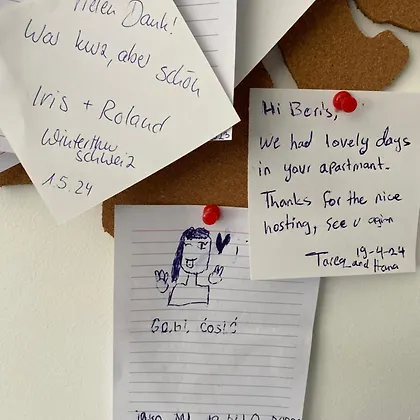 Vielen Dank!
War kurz, aber schön
Iris + Roland
Winterthur
Schweiz
1.5.24
Hi Boris,
We had lovely days
in your apartmant.
Thanks for the nice
hosting, see u again
19-4-24
Tareq and Hana
Gabi Ćosić